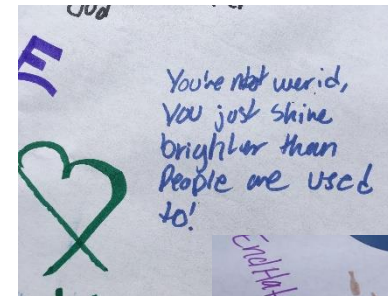 You're not werid,
you just shine
brighter than
People are used
to!
EndHat